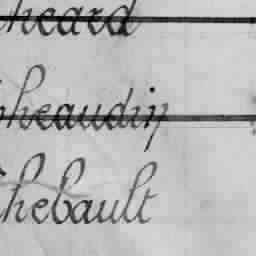 heard
heaudin
hebault